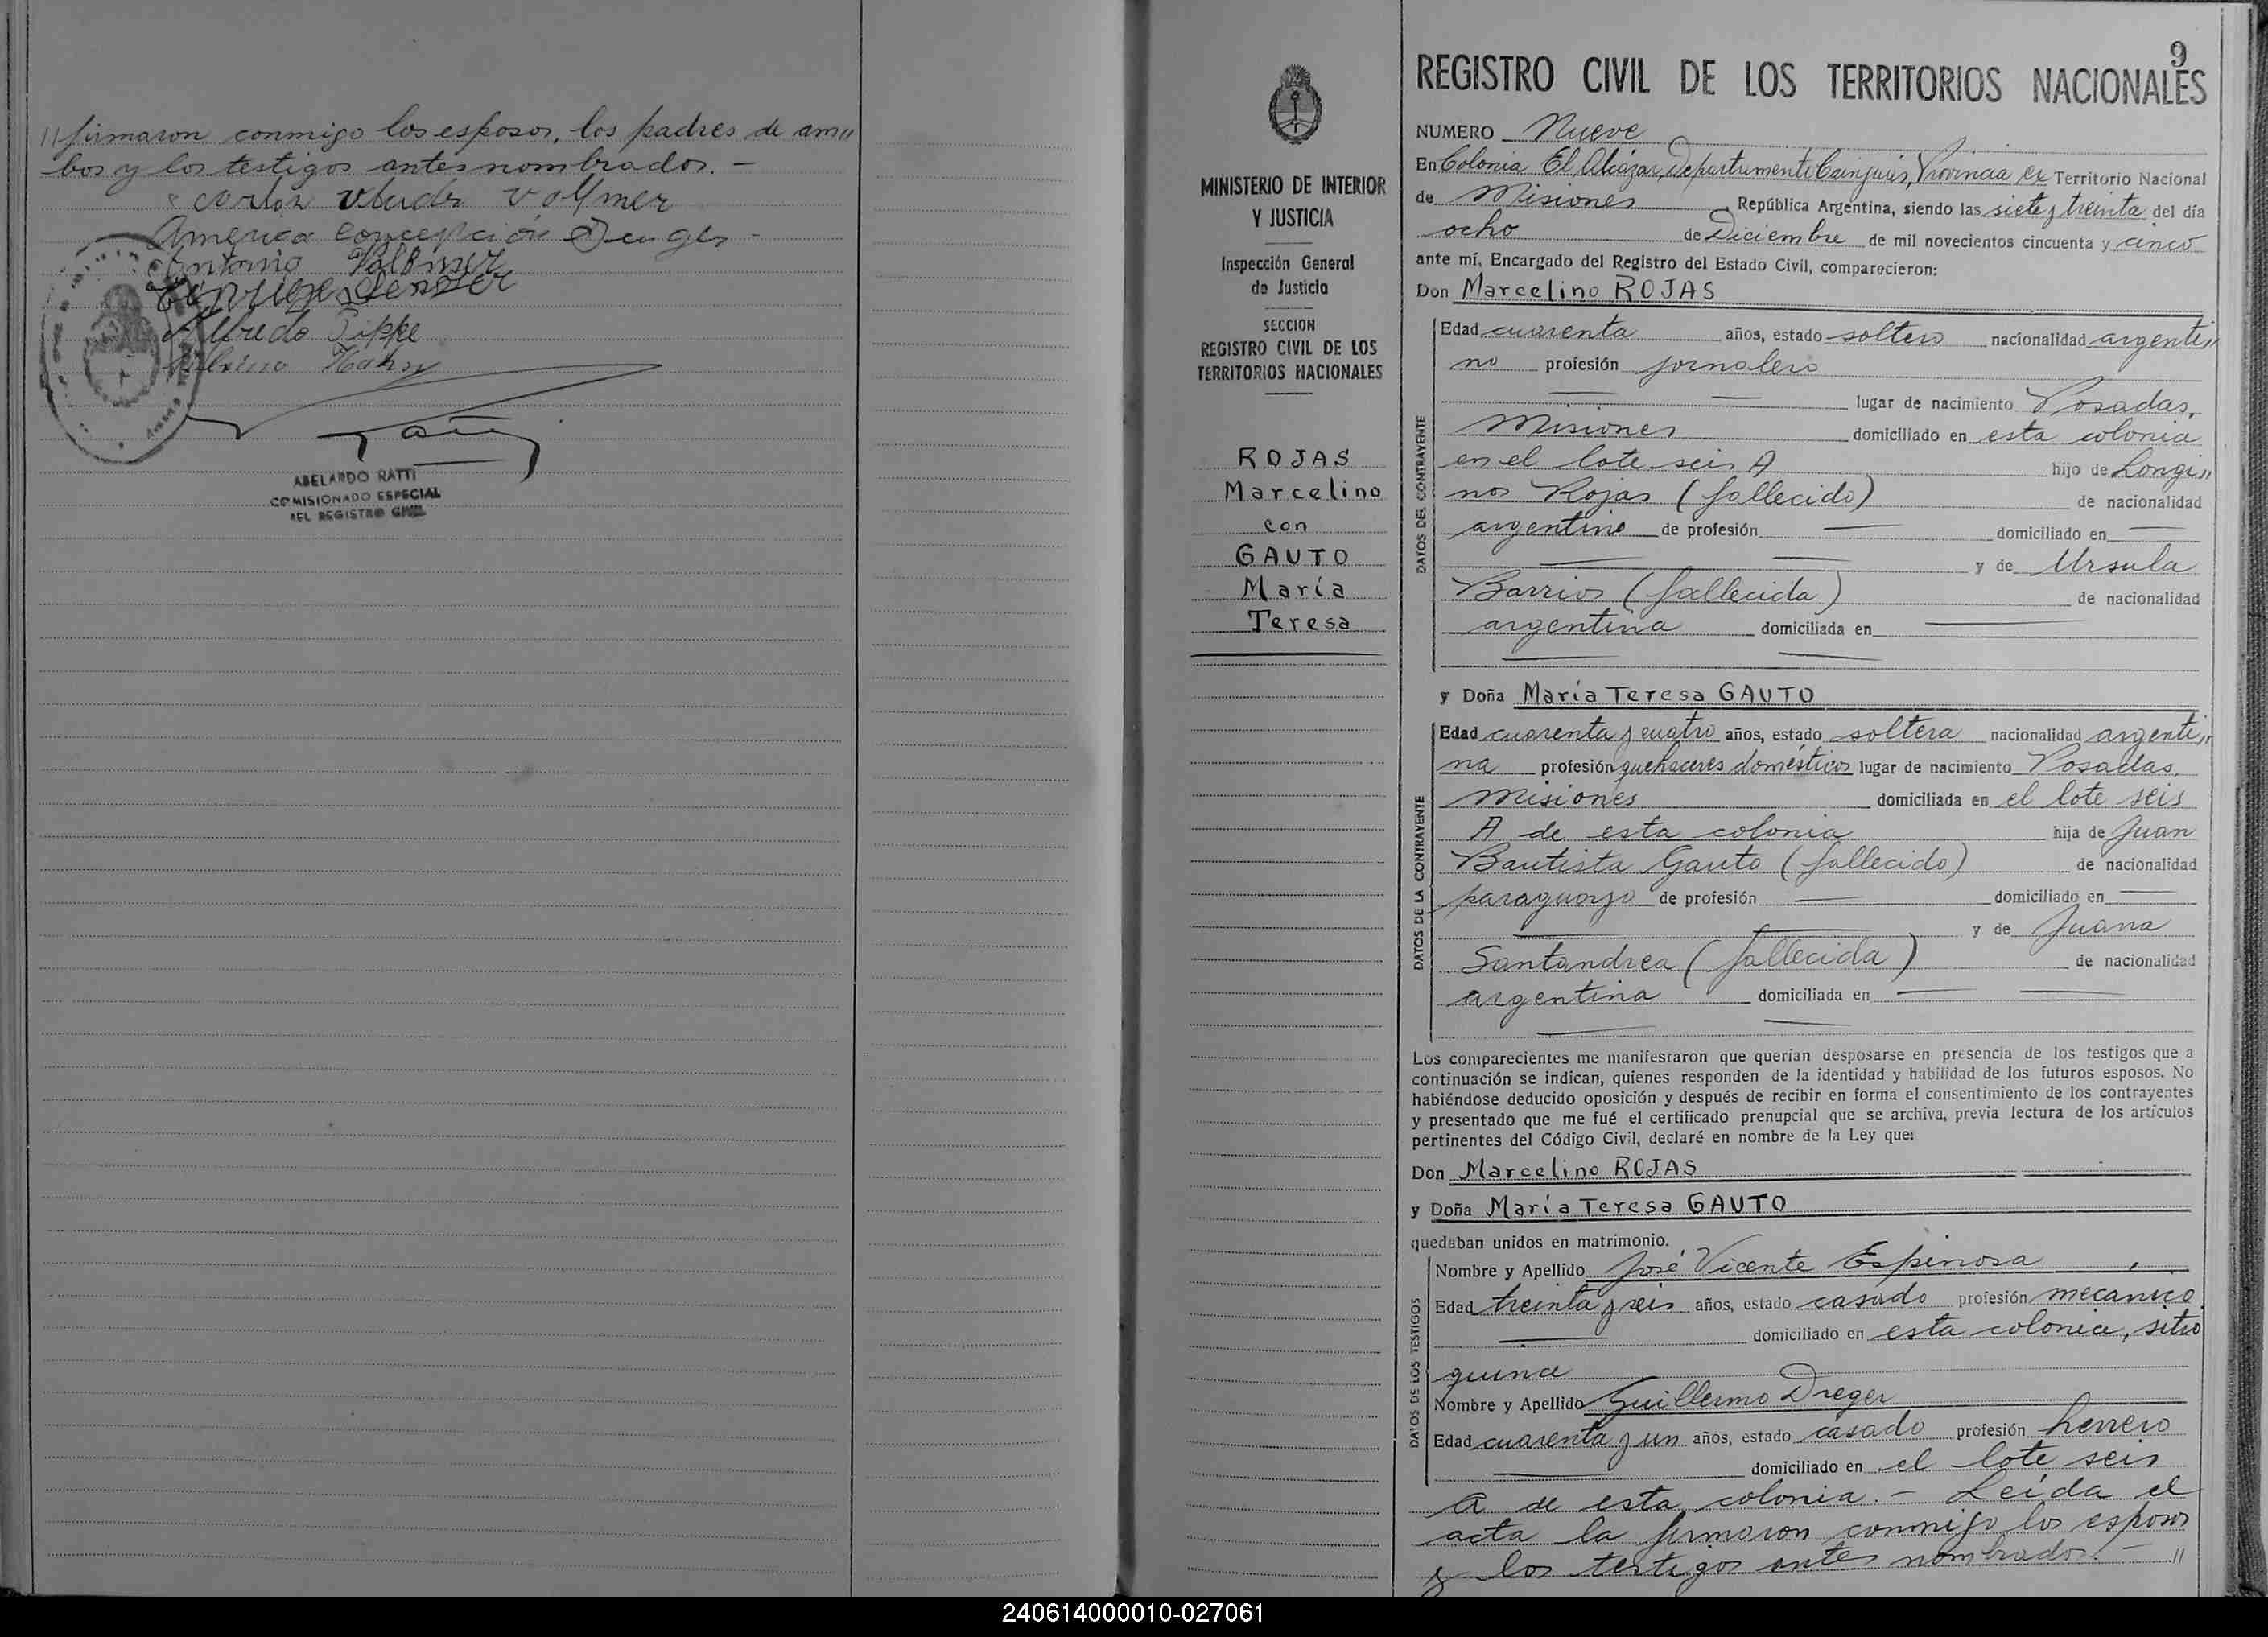 // firmaron conmigo los esposos, los padres de am//
bos y los testigos antes nombrados. —
Vollmer
America Concepción
Antonio Vollmer
Alfredo Zippe
Albino Hahn
ABELARDO RATTI
COMISIONADO ESPECIAL
DEL REGISTRO CIVIL
MINISTERIO DE INTERIOR
Y JUSTICIA
Inspección General
de Justicia
SECCION
REGISTRO CIVIL DE LOS
TERRITORIOS NACIONALES
ROJAS
Marcelino
con
GAUTO
María
Teresa
9
REGISTRO CIVIL DE LOS TERRITORIOS NACIONALES
NUMERO Nueve
En Colonia El Alcázar, Departamento Cainguás, Provincia ex Territorio Nacional
de Misiones, República Argentina, siendo las siete y treinta del día
ocho de Diciembre de mil novecientos cincuenta y cinco
ante mí, Encargado del Registro del Estado Civil, comparecieron:
Don Marcelino ROJAS
DATOS DEL CONTRAYENTE
Edad cuarenta años, estado soltero nacionalidad argenti//
no profesión jornalero
lugar de nacimiento Posadas,
Misiones domiciliado en esta colonia
en el lote seis A hijo de Longi//
nos Rojas (fallecido) de nacionalidad
argentino de profesión — domiciliado en —
y de Ursula
Barrios (fallecida) de nacionalidad
argentina domiciliada en —
y Doña María Teresa GAUTO
DATOS DE LA CONTRAYENTE
Edad cuarenta y cuatro años, estado soltera nacionalidad argenti//
na profesión quehaceres domésticos lugar de nacimiento Posadas,
Misiones domiciliada en el lote seis
A de esta colonia hija de Juan
Bautista Gauto (fallecido) de nacionalidad
paraguayo de profesión — domiciliado en —
y de Juana
Santandrea (fallecida) de nacionalidad
argentina domiciliada en —
Los comparecientes me manifestaron que querían desposarse en presencia de los testigos que a
continuación se indican, quienes responden de la identidad y habilidad de los futuros esposos. No
habiéndose deducido oposición y después de recibir en forma el consentimiento de los contrayentes
y presentado que me fué el certificado prenupcial que se archiva, previa lectura de los artículos
pertinentes del Código Civil, declaré en nombre de la Ley que:
Don Marcelino ROJAS
y Doña María Teresa GAUTO
quedaban unidos en matrimonio.
DATOS DE LOS TESTIGOS
Nombre y Apellido José Vicente Espinosa
Edad treinta y seis años, estado casado profesión mecánico
domiciliado en esta colonia, sitio
quince
Nombre y Apellido Guillermo Dreger
Edad cuarenta y un años, estado casado profesión herrero
domiciliado en el lote seis
A de esta colonia. — Leída el
acta la firmaron conmigo los esposos
y los testigos antes nombrados. — //
240614000010-027061